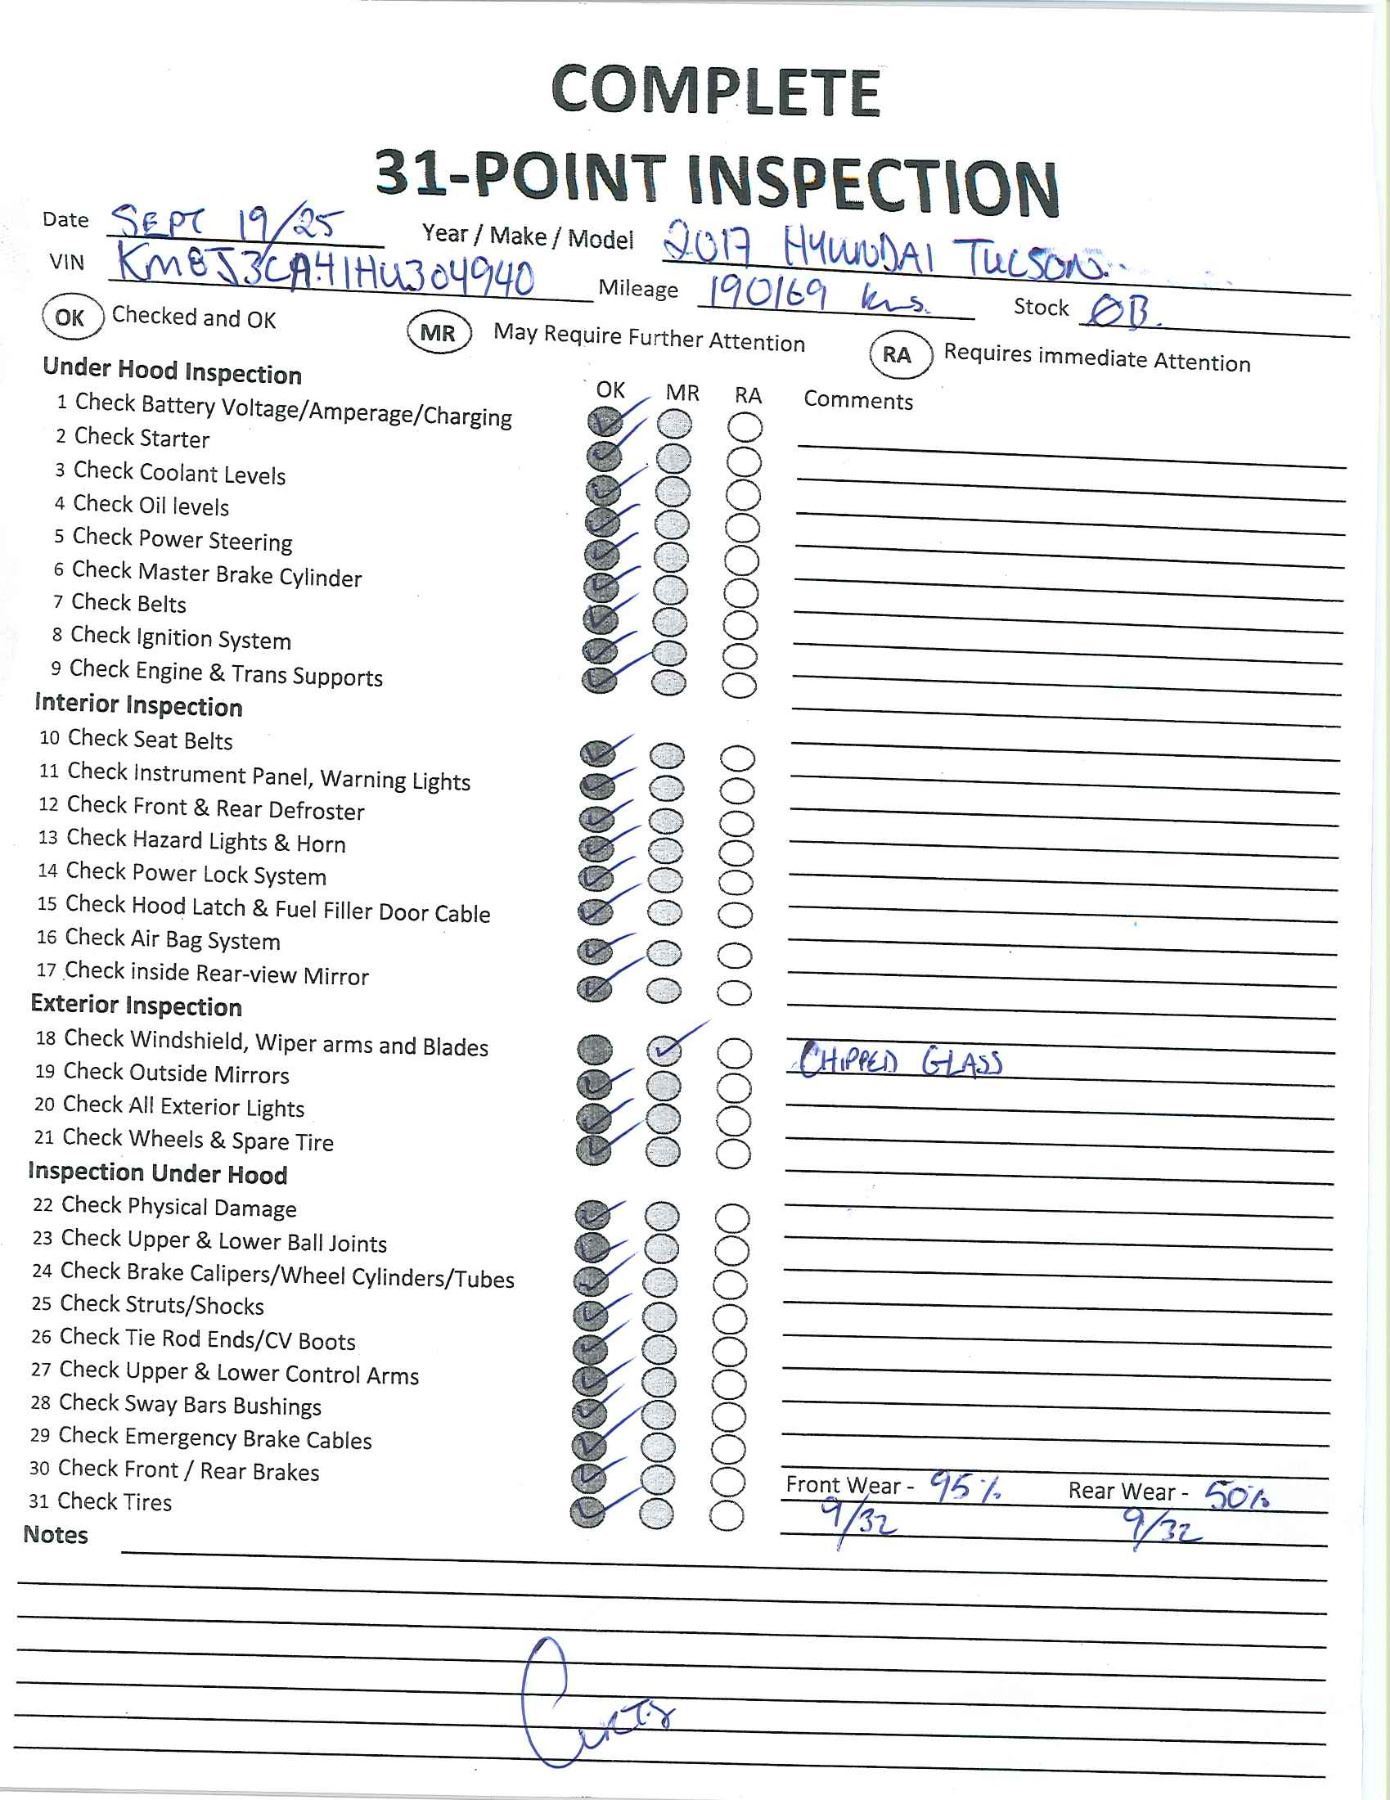 COMPLETE
31-POINT INSPECTION
Date SEPT 19/25 Year / Make / Model 2017 HYUNDAI TUCSON
VIN KM8J3CA41HU304940 Mileage 190169 kms. Stock ØB.
OK Checked and OK MR May Require Further Attention RA Requires immediate Attention
Under Hood Inspection OK MR RA Comments
1 Check Battery Voltage/Amperage/Charging
2 Check Starter
3 Check Coolant Levels
4 Check Oil levels
5 Check Power Steering
6 Check Master Brake Cylinder
7 Check Belts
8 Check Ignition System
9 Check Engine & Trans Supports
Interior Inspection
10 Check Seat Belts
11 Check Instrument Panel, Warning Lights
12 Check Front & Rear Defroster
13 Check Hazard Lights & Horn
14 Check Power Lock System
15 Check Hood Latch & Fuel Filler Door Cable
16 Check Air Bag System
17 Check inside Rear-view Mirror
Exterior Inspection
18 Check Windshield, Wiper arms and Blades CHIPPED GLASS
19 Check Outside Mirrors
20 Check All Exterior Lights
21 Check Wheels & Spare Tire
Inspection Under Hood
22 Check Physical Damage
23 Check Upper & Lower Ball Joints
24 Check Brake Calipers/Wheel Cylinders/Tubes
25 Check Struts/Shocks
26 Check Tie Rod Ends/CV Boots
27 Check Upper & Lower Control Arms
28 Check Sway Bars Bushings
29 Check Emergency Brake Cables
30 Check Front / Rear Brakes Front Wear - 95% Rear Wear - 50%
31 Check Tires 9/32 9/32
Notes
Curtis